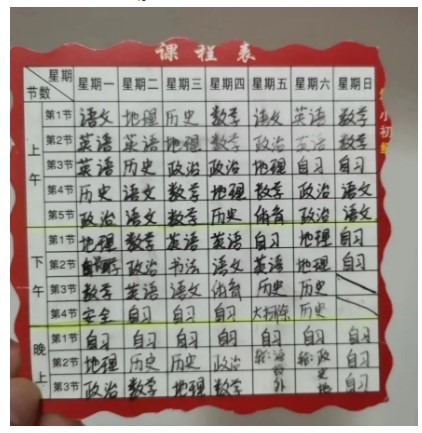 课程表
星期 星期一 星期二 星期三 星期四 星期五 星期六 星期日
节数
上午
第1节 语文 地理 历史 数学 语文 英语 数学
第2节 英语 英语 地理 数学 政治 英语 数学
第3节 英语 历史 政治 政治 地理 自习 自习
第4节 历史 语文 数学 地理 数学 政治 语文
第5节 政治 语文 数学 历史 体育 政治 语文
下午
第1节 地理 数学 英语 英语 自习 地理 自习
第2节 政治 书法 语文 英语 地理 自习
第3节 数学 英语 语文 体育 历史 历史
第4节 安全 自习 自习 自习 大扫除 历史
晚上
第1节 自习 自习 自习 自习 自习 自习 自习
第2节 地理 历史 历史 政治 自习
第3节 政治 数学 地理 数学 自习
小初